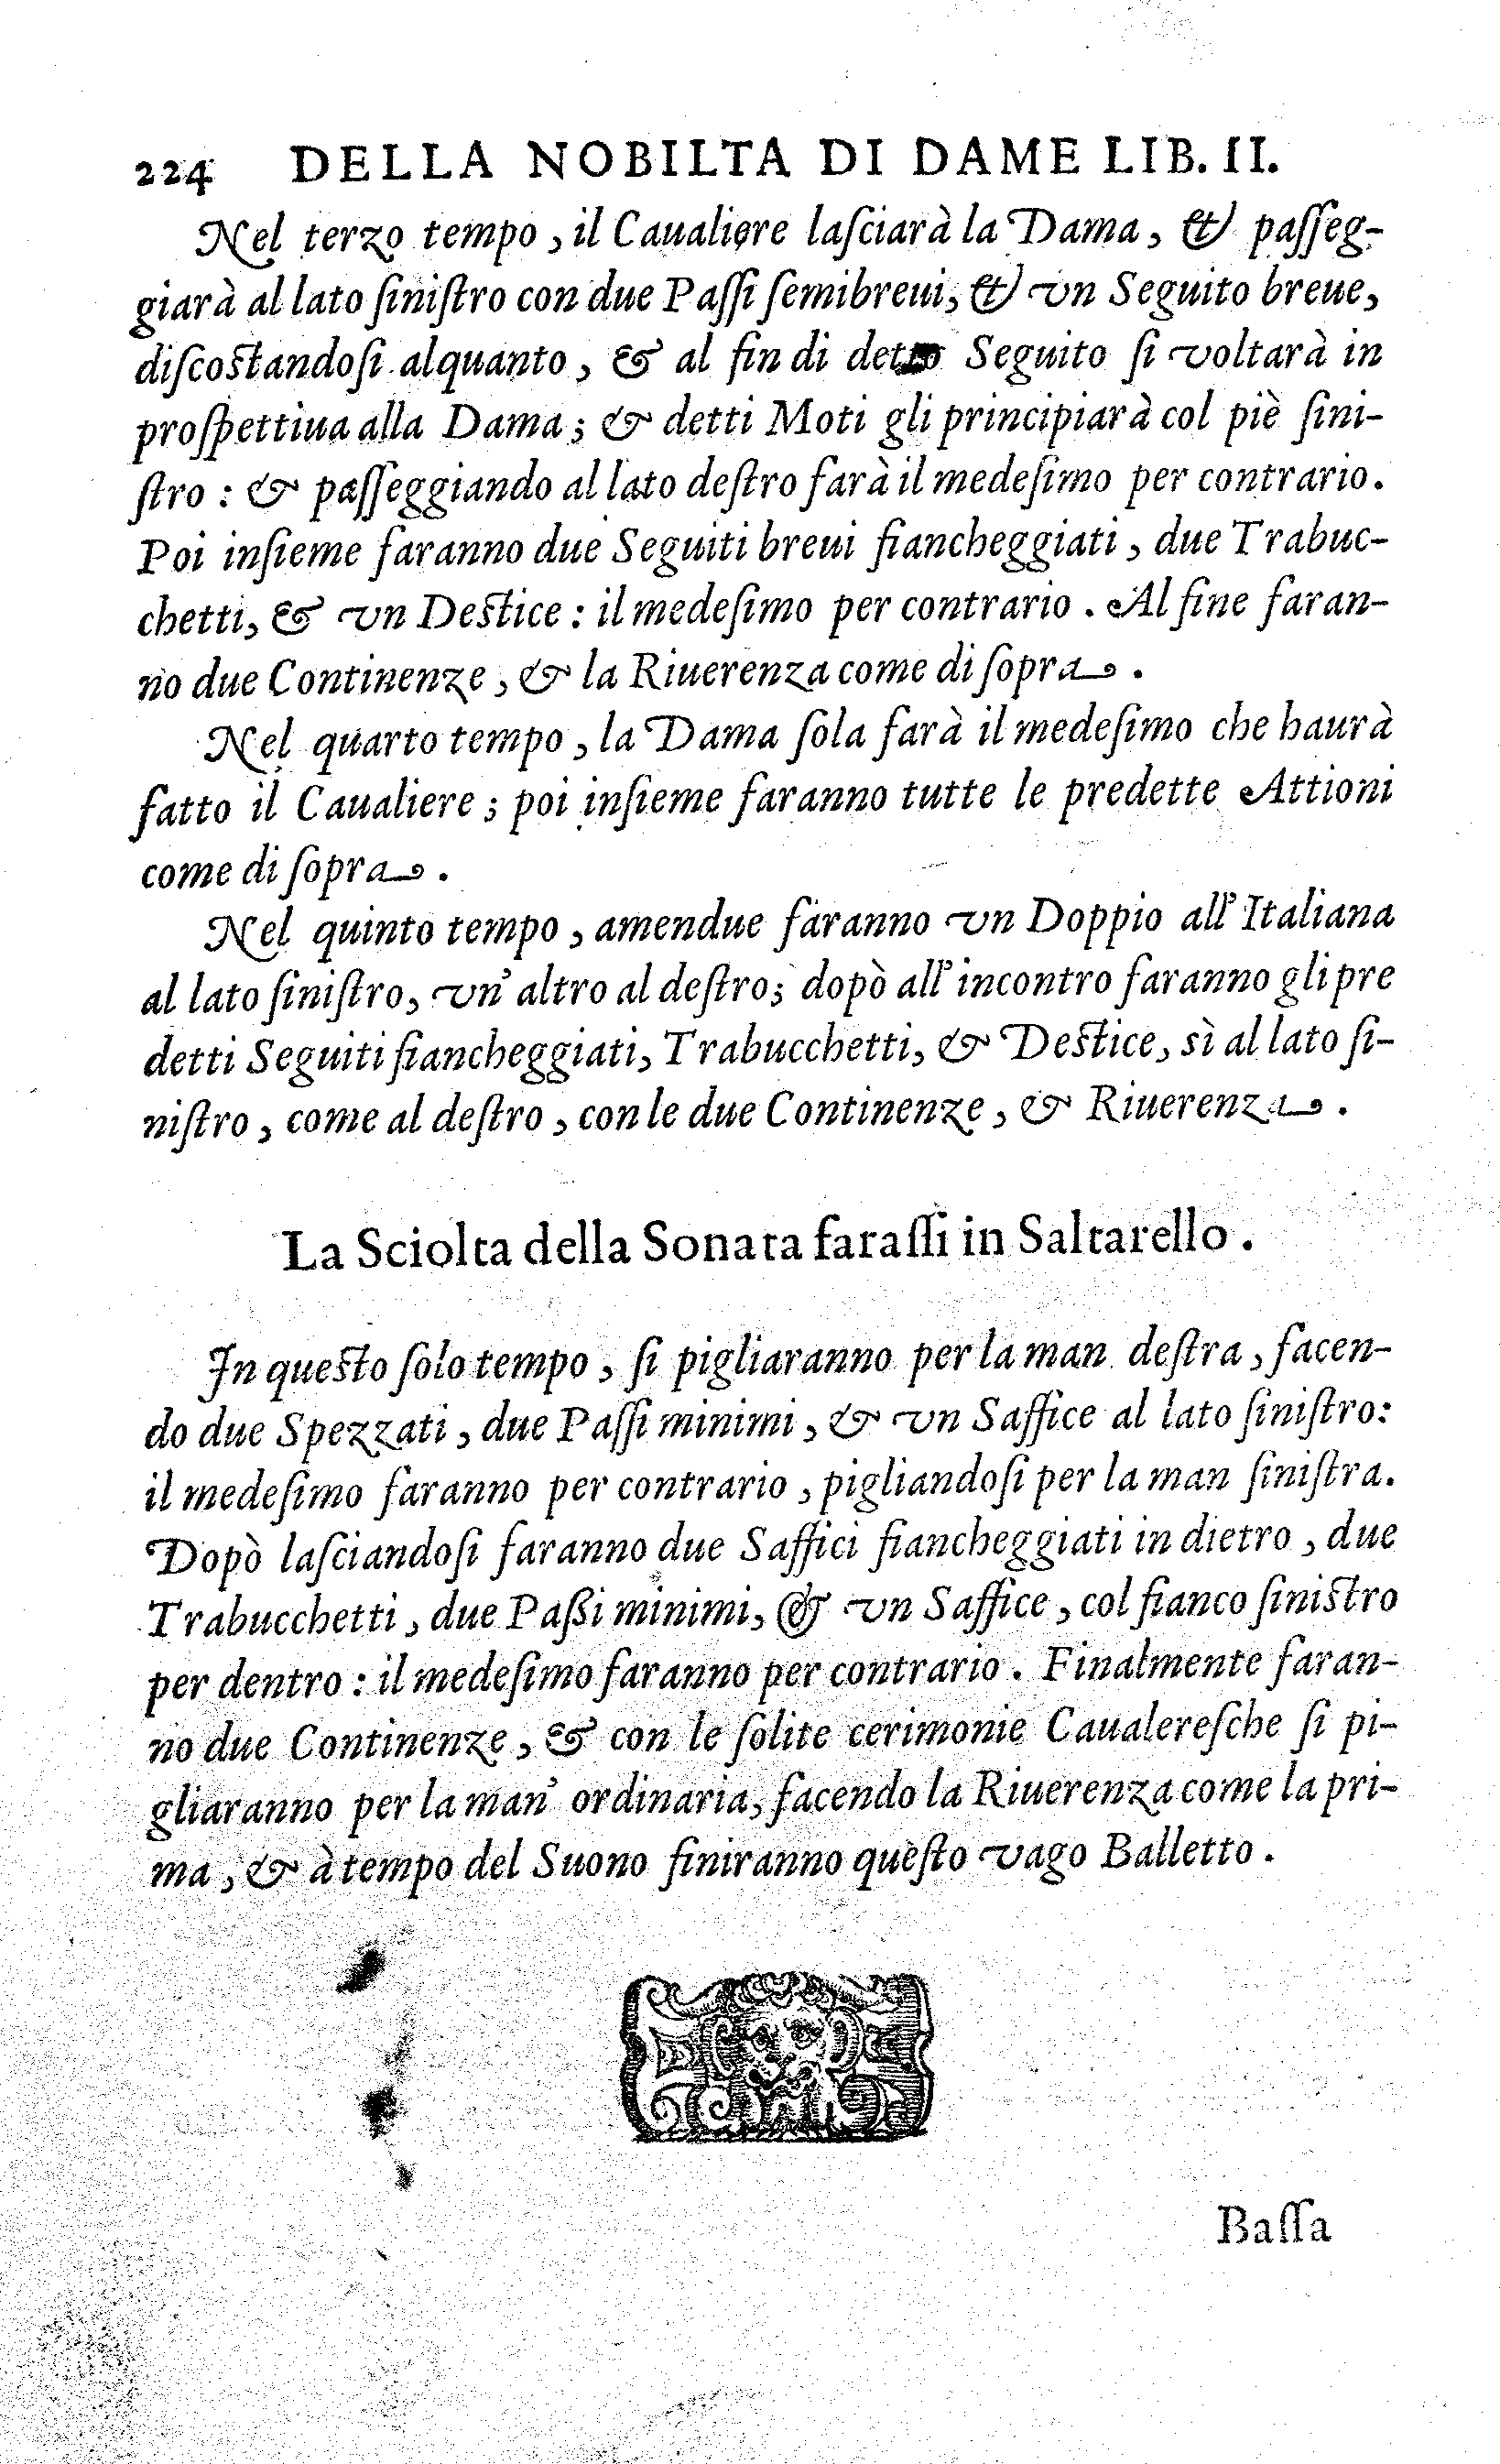 224 DELLA NOBILTA DI DAME LIB. II.
Nel terzo tempo, il Caualiere laſciarà la Dama, & paſſeg-
giarà al lato ſiniſtro con due Paſſi ſemibreui, & vn Seguito breue,
diſcoſtandoſi alquanto, & al fin di detto Seguito ſi voltarà in
proſpettiua alla Dama; & detti Moti gli principiarà col piè ſini-
ſtro: & paſſeggiando al lato deſtro farà il medeſimo per contrario.
Poi inſieme faranno due Seguiti breui fiancheggiati, due Trabuc-
chetti, & vn Deſtice: il medeſimo per contrario. Al fine faran-
no due Continenze, & la Riuerenza come di ſopra.
Nel quarto tempo, la Dama ſola farà il medeſimo che haurà
fatto il Caualiere; poi inſieme faranno tutte le predette Attioni
come di ſopra.
Nel quinto tempo, amendue faranno vn Doppio all'Italiana
al lato ſiniſtro, vn' altro al deſtro; dopò all'incontro faranno gli pre
detti Seguiti fiancheggiati, Trabucchetti, & Deſtice, sì al lato ſi-
niſtro, come al deſtro, con le due Continenze, & Riuerenza.
La Sciolta della Sonata faraſſi in Saltarello.
In queſto ſolo tempo, ſi pigliaranno per la man deſtra, facen-
do due Spezzati, due Paſſi minimi, & vn Saffice al lato ſiniſtro:
il medeſimo faranno per contrario, pigliandoſi per la man ſiniſtra.
Dopò laſciandoſi faranno due Saffici fiancheggiati in dietro, due
Trabucchetti, due Paßi minimi, & vn Saffice, col fianco ſiniſtro
per dentro: il medeſimo faranno per contrario. Finalmente faran-
no due Continenze, & con le ſolite cerimonie Caualereſche ſi pi-
gliaranno per la man' ordinaria, facendo la Riuerenza come la pri-
ma, & à tempo del Suono finiranno queſto vago Balletto.
Baſſa